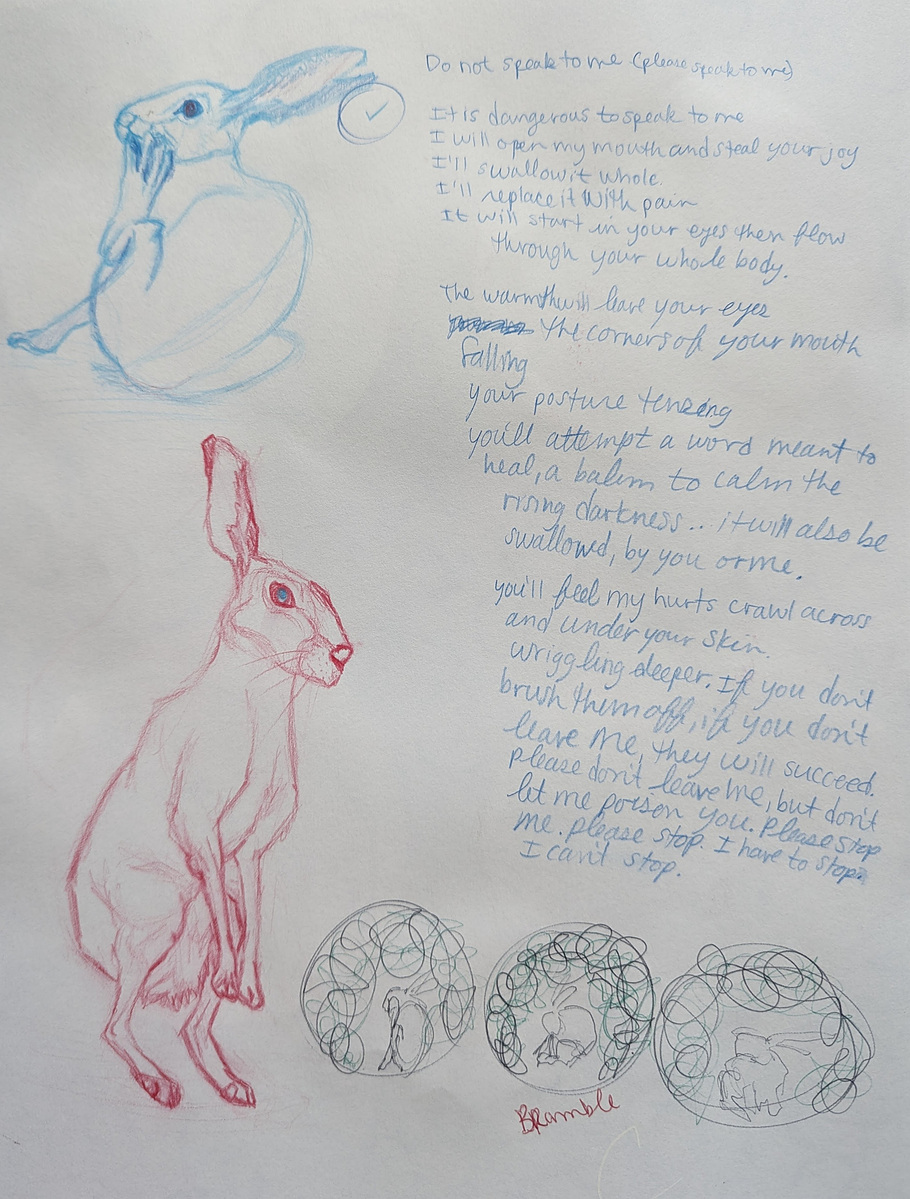 Do not speak to me (please speak to me)
It is dangerous to speak to me
I will open my mouth and steal your joy
I'll swallow it whole.
I'll replace it with pain
It will start in your eyes then flow
through your whole body.
The warmth will leave your eyes
the corners of your mouth
falling
your posture tenzing
you'll attempt a word meant to
heal, a balm to calm the
rising darkness... it will also be
swallowed, by you or me.
you'll feel my hurts crawl across
and under your skin.
wriggling deeper. If you don't
brush them off, if you don't
leave me, they will succeed.
please don't leave me, but don't
let me poison you. Please stop
me. please stop. I have to stop.
I can't stop.
Bramble